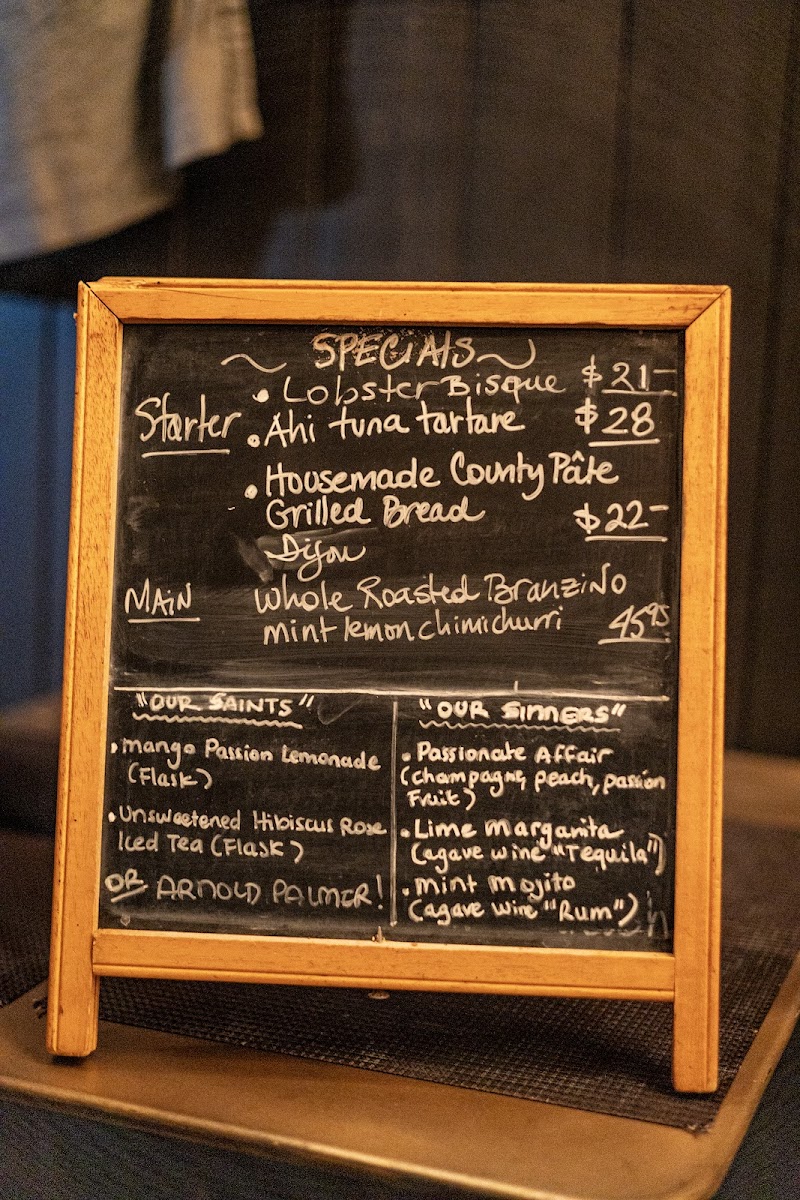 ~ SPECIAlS ~
• Lobster Bisque $21-
Starter • Ahi tuna tartare $28
• Housemade County Pâte
Grilled Bread $22-
Dijon
MAIN Whole Roasted BranziNo
mint lemon chimichurri 45⁹⁵
"OUR SAINTS"
• Mango Passion Lemonade
(Flask)
• Unsweetened Hibiscus Rose
Iced Tea (Flask)
OR ARNOLD PALMER!
"OUR SINNERS"
• Passionate Affair
(champagne, peach, passion
Fruit)
• Lime Margarita
(agave wine "Tequila")
• Mint Mojito
(agave wine "Rum")